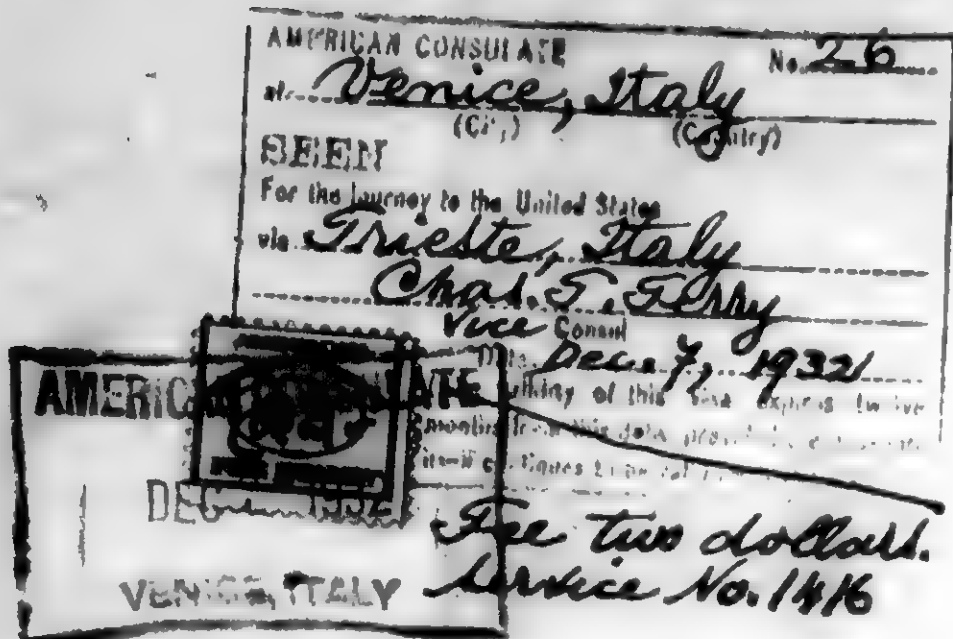 AMERICAN CONSULATE No. 26
at Venice, Italy
(City) (Country)
SEEN
For the journey to the United States
via Trieste, Italy
Chas. S. Terry
Vice Consul
Date Dec. 7, 1932
of this visa expires twelve
months from this date provided
continues to be
AMERICAN CONSULATE
DEC 1932
VENICE, ITALY
Fee two dollars.
Service No. 1416